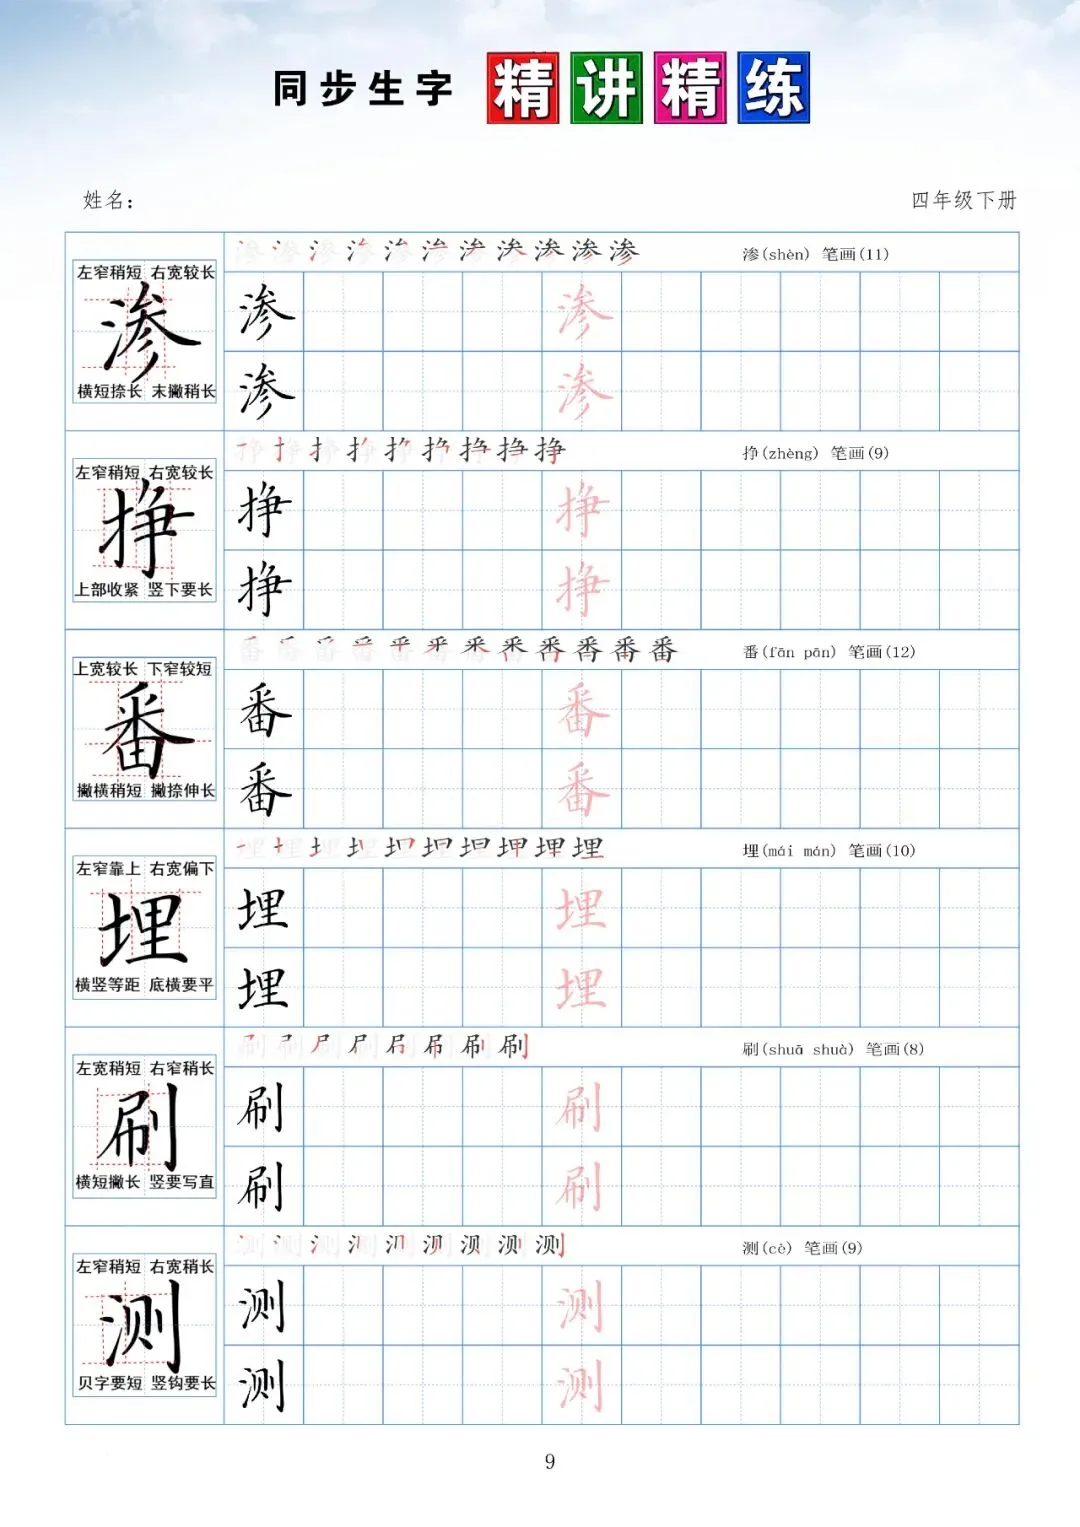 同步生字 精讲精练
姓名： 四年级下册
左窄稍短 右宽较长
渗
横短捺长 末撇稍长
渗 渗 渗 渗 渗 渗 渗 渗 渗 渗 渗 渗(shèn) 笔画(11)
渗 渗
渗 渗
左窄稍短 右宽较长
挣
上部收紧 竖下要长
挣 挣 挣 挣 挣 挣 挣 挣 挣 挣(zhèng) 笔画(9)
挣 挣
挣 挣
上宽较长 下窄较短
番
撇横稍短 撇捺伸长
番 番 番 番 番 番 番 番 番 番 番 番 番(fān pān) 笔画(12)
番 番
番 番
左窄靠上 右宽偏下
埋
横竖等距 底横要平
埋 埋 埋 埋 埋 埋 埋 埋 埋 埋 埋(mái mán) 笔画(10)
埋 埋
埋 埋
左宽稍短 右窄稍长
刷
横短撇长 竖要写直
刷 刷 刷 刷 刷 刷 刷 刷 刷(shuā shuà) 笔画(8)
刷 刷
刷 刷
左窄稍短 右宽稍长
测
贝字要短 竖钩要长
测 测 测 测 测 测 测 测 测 测(cè) 笔画(9)
测 测
测 测
9